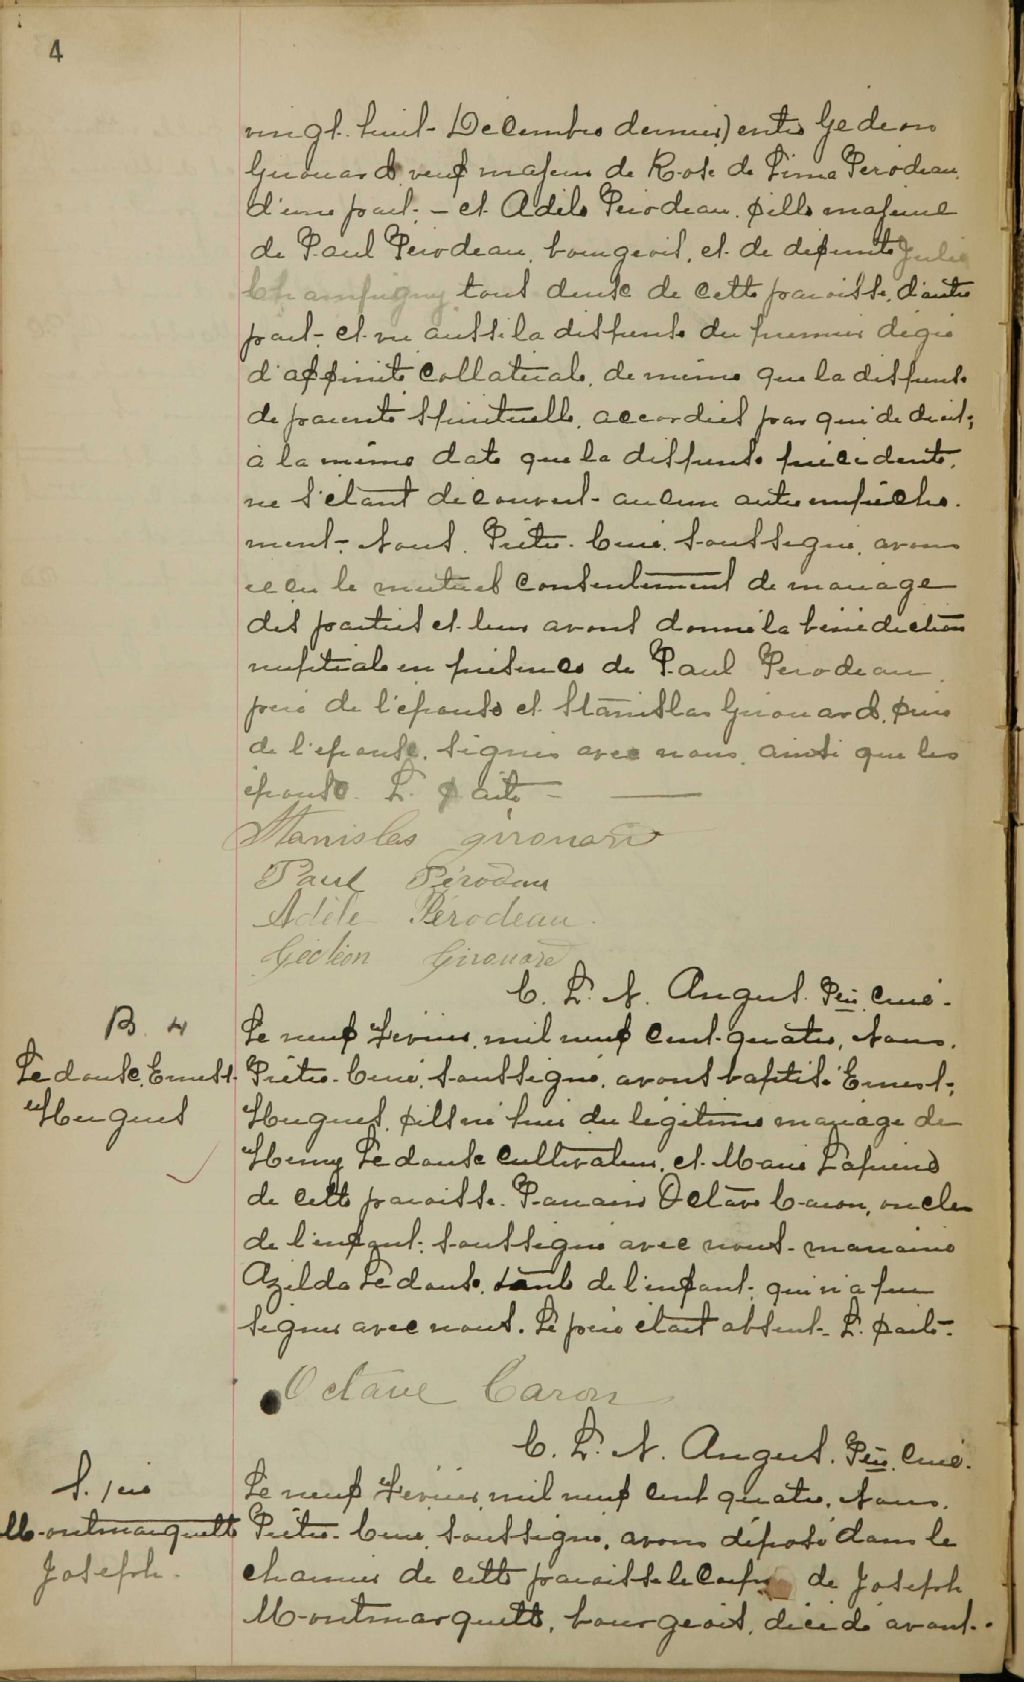 4
vingt-huit Décembre dernier) entre Gédéon
Girouard, veuf majeur de Rose de Lima Pérodeau,
d'une part; – et Adèle Pérodeau, fille majeure
de Paul Pérodeau, bourgeois, et de défunte Julie
Champigny, tous deux de cette paroisse, d'autre
part; et vu aussi la dispense du premier dégré
d'affinité collatérale, de même que la dispense
de parenté spirituelle, accordées par qui de droit;
à la même date que la dispense précédente,
ne s'étant découvert aucun autre empêche-
ment; Nous, Prêtre-Curé, soussigné, avons
reçu le mutuel consentement de mariage
des parties et leur avons donné la bénédiction
nuptiale en présence de Paul Pérodeau,
père de l'épouse et Stanislas Girouard, frère
de l'époux, signés avec nous, ainsi que les
époux. L. faite –
Stanislas girouard
Paul Pérodeau
Adèle Pérodeau.
Gédéon Girouard
C. L. N. Angus. Ptre, curé.
B. 4
Ledoux, Ernest-
Hugues
Le neuf Février, mil neuf cent-quatre, Nous,
Prêtre-Curé, soussigné, avons baptisé Ernest-
Hugues, fils né hier du légitime mariage de
Henry Ledoux cultivateur, et Marie Lafrenié
de cette paroisse. Parrain Octave Caron, oncle
de l'enfant; soussigné avec nous – marraine
Azilda Ledoux, tante de l'enfant; qui n'a pu
signer avec nous. Le père était absent. L. faite –
Octave Caron
C. L. N. Angus. Ptre, curé.
S. 1er
Montmarquette
Joseph.
Le neuf Février, mil neuf cent quatre, Nous,
Prêtre-Curé, soussigné, avons déposé dans le
charnier de cette paroisse le corps de Joseph
Montmarquette, bourgeois, décédé avant-